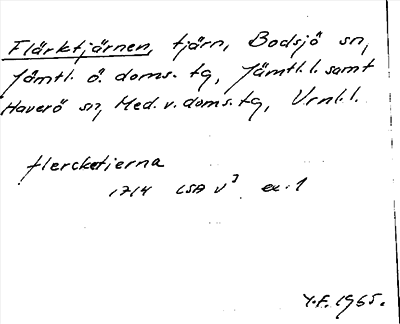 Flärktjärnen, tjärn, Bodsjö sn,
Jämtl. ö. doms. tg, Jämtl. l. samt
Haverö sn, Med. v. doms. tg, Vrnl. l.
flercketierna
1714 LSA V³ ex. 1
Y.F. 1965.